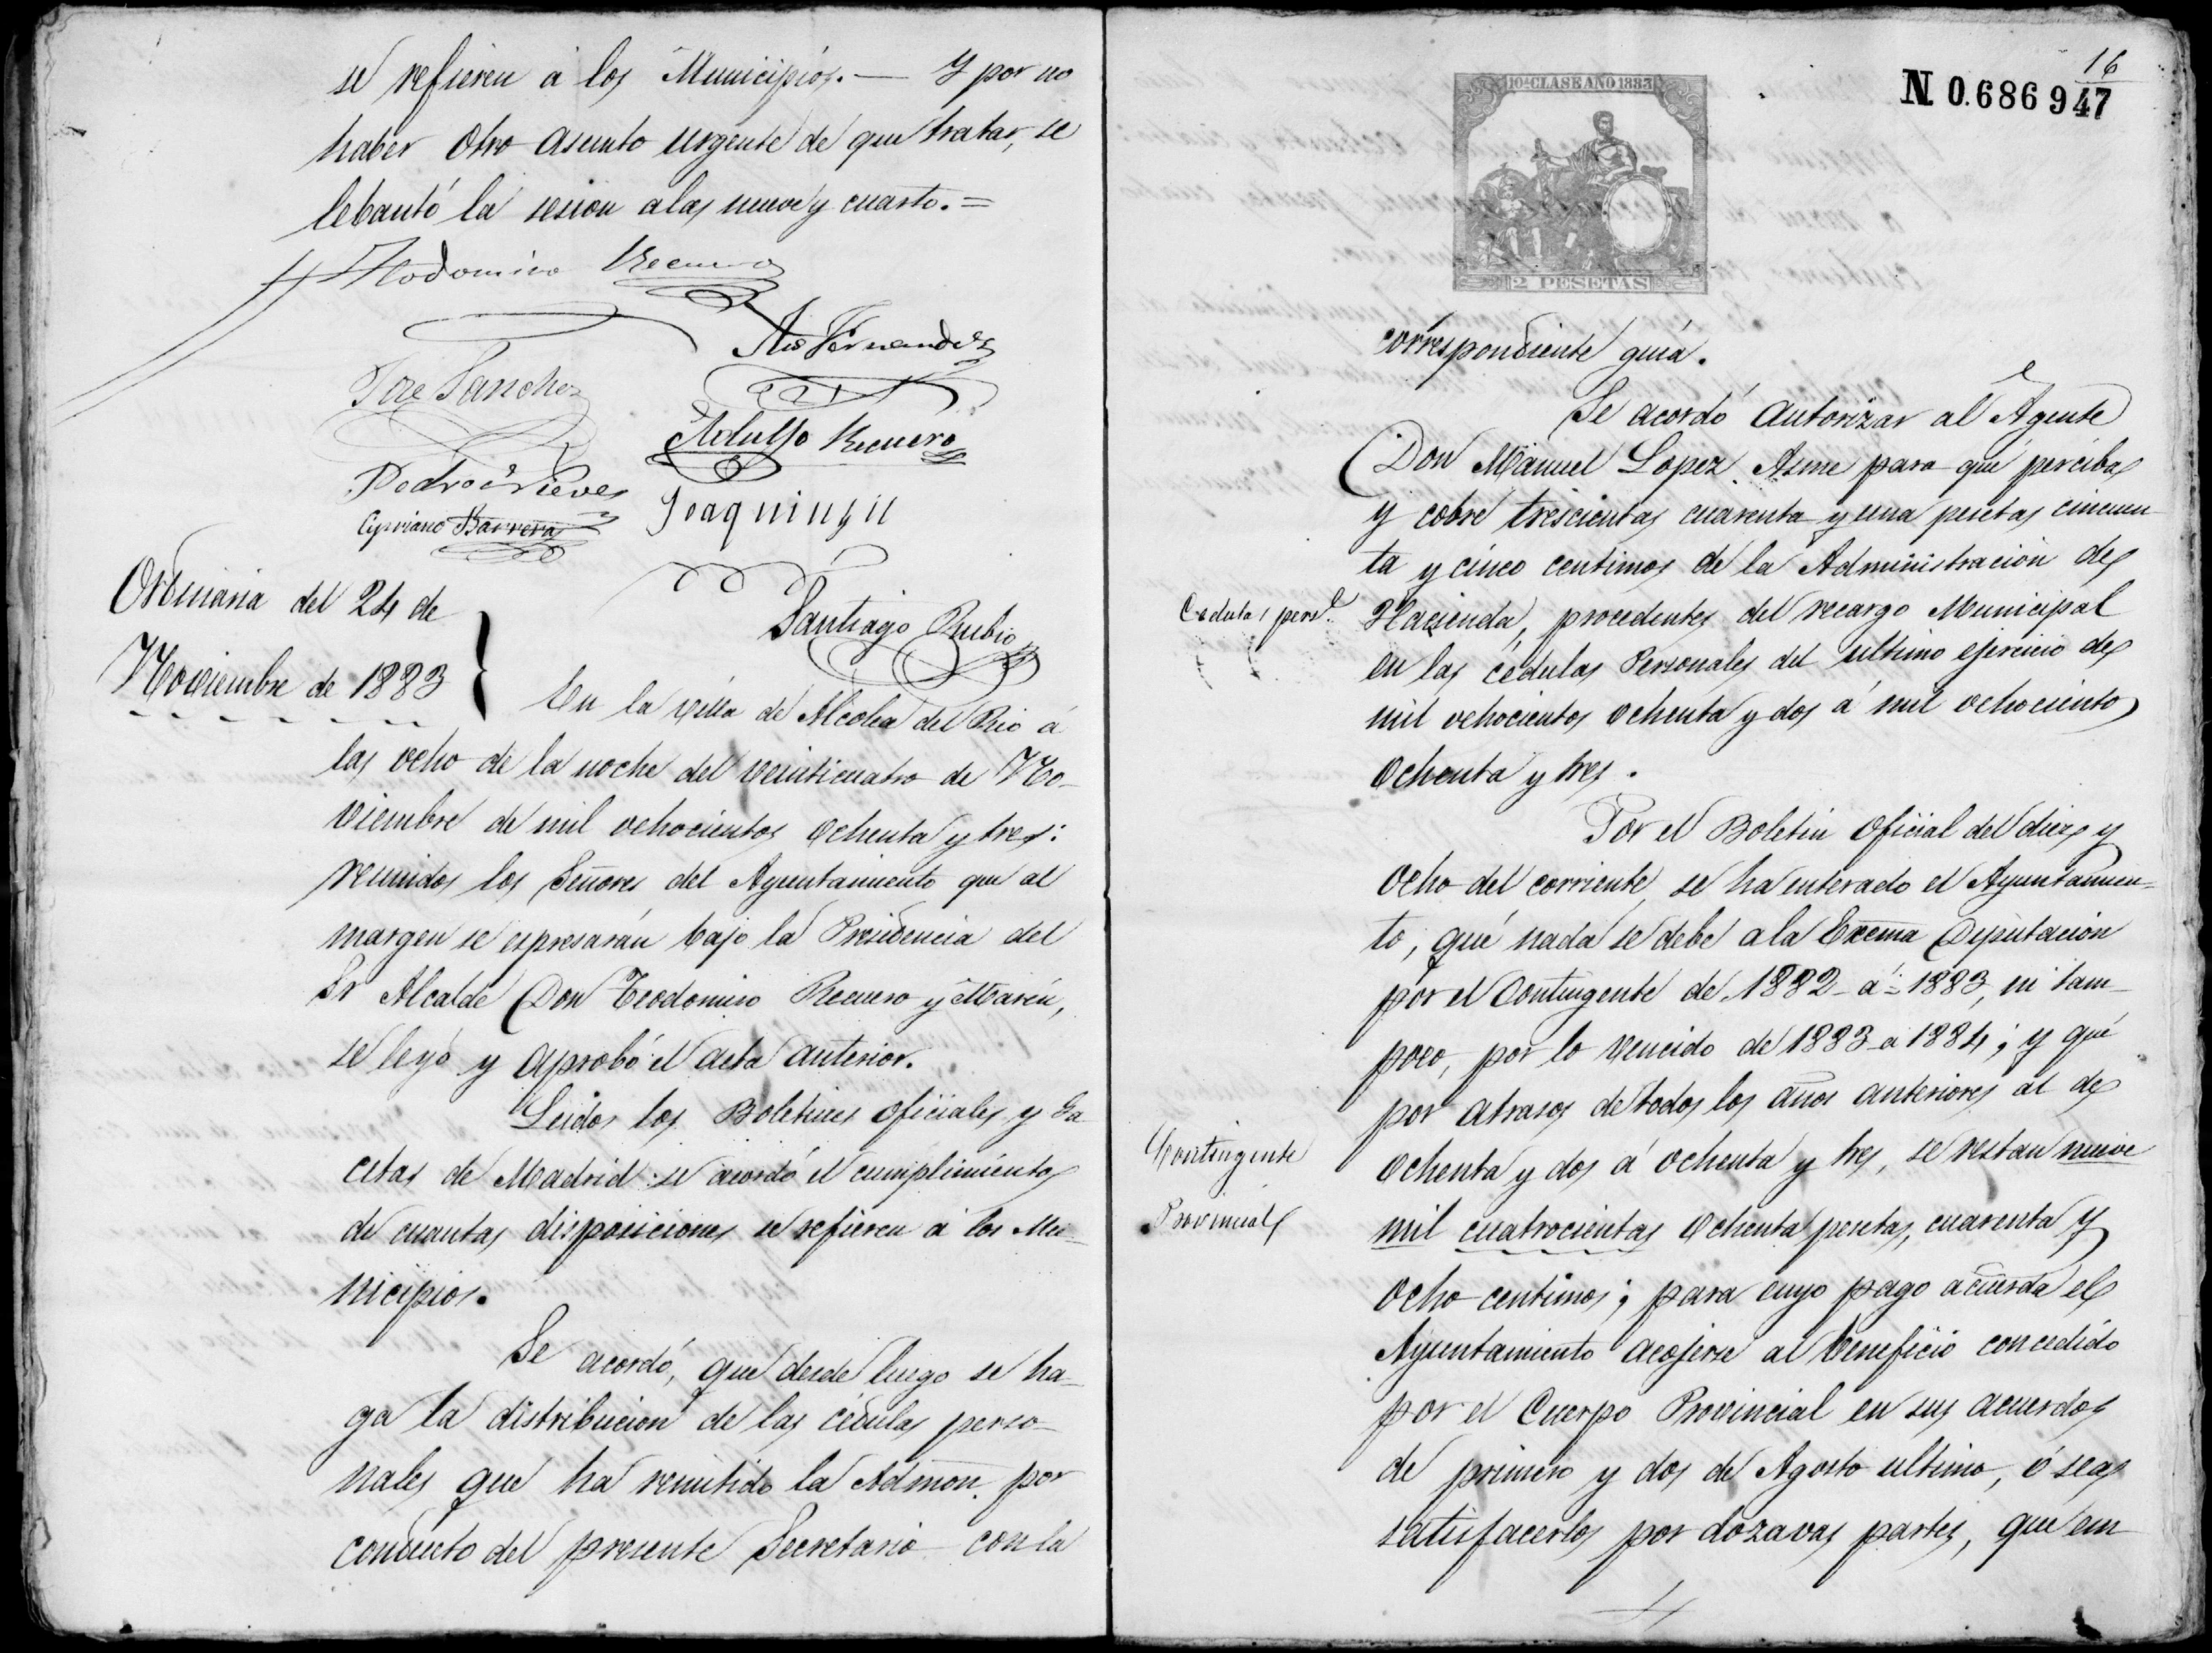 se refieren á los Municipios. — Y por no
haber otro asunto urgente de que tratar, se
lebantó la sesion alas nueve y cuarto. =
Teodomiro Recuero
Fernandez
Jose Sanchez
Adolfo Recuero
Pedro Nieves
Joaquin Gil
Cipriano Barrera
Santiago Rubio
Ordinaria del 24 de
Noviembre de 1883
En la villa de Alcolea del Rio á
las ocho de la noche del veinticuatro de No-
viembre de mil ochocientos ochenta y tres:
reunidos los Señores del Ayuntamiento que al
margen se espresarán bajo la Presidencia del
Sr Alcalde Don Teodomiro Recuero y Marin,
se leyó y aprobó el acta anterior.
Leidos los Boletines oficiales y Ga
cetas de Madrid se acordó el cumplimiento
de cuantas disposiciones se refieren á los Mu-
nicipios.
Se acordó, que desde luego se ha-
ga la distribucion de las cédulas perso-
nales que ha remitido la Admon. por
conducto del presente Secretario con la
16
N. 0.686947
10ª CLASE AÑO 1883
2 PESETAS
correspondiente guia.
Se acordó autorizar al Agente
Don Manuel Lopez Asme para que perciba
y cobre trescientas cuarenta y una pesetas cincuen
ta y cinco centimos de la Administracion de
Cedulas persl.
Hacienda, procedentes del recargo Municipal
en las cédulas Personales del ultimo ejercicio de
mil ochocientos ochenta y dos á mil ochociento
ochenta y tres.
Por el Boletin oficial del diez y
ocho del corriente se ha enterado el Ayuntamien-
to, que nada se debe ala Excma Diputacion
por el Contingente de 1882 á 1883, ni tam-
poco, por lo vencido de 1883 a 1884; y que
por atrasos de todos los años anteriores al de
Contingente
Provincial
ochenta y dos á ochenta y tres, se restan nueve
mil cuatrocientas ochenta pesetas, cuarenta y
ocho centimos; para cuyo pago acuerda el
Ayuntamiento acojerse al beneficio concedido
por el Cuerpo Provincial en sus acuerdos
de primero y dos de Agosto ultimo, ó sea
satisfacerlos por dozavas partes, que em